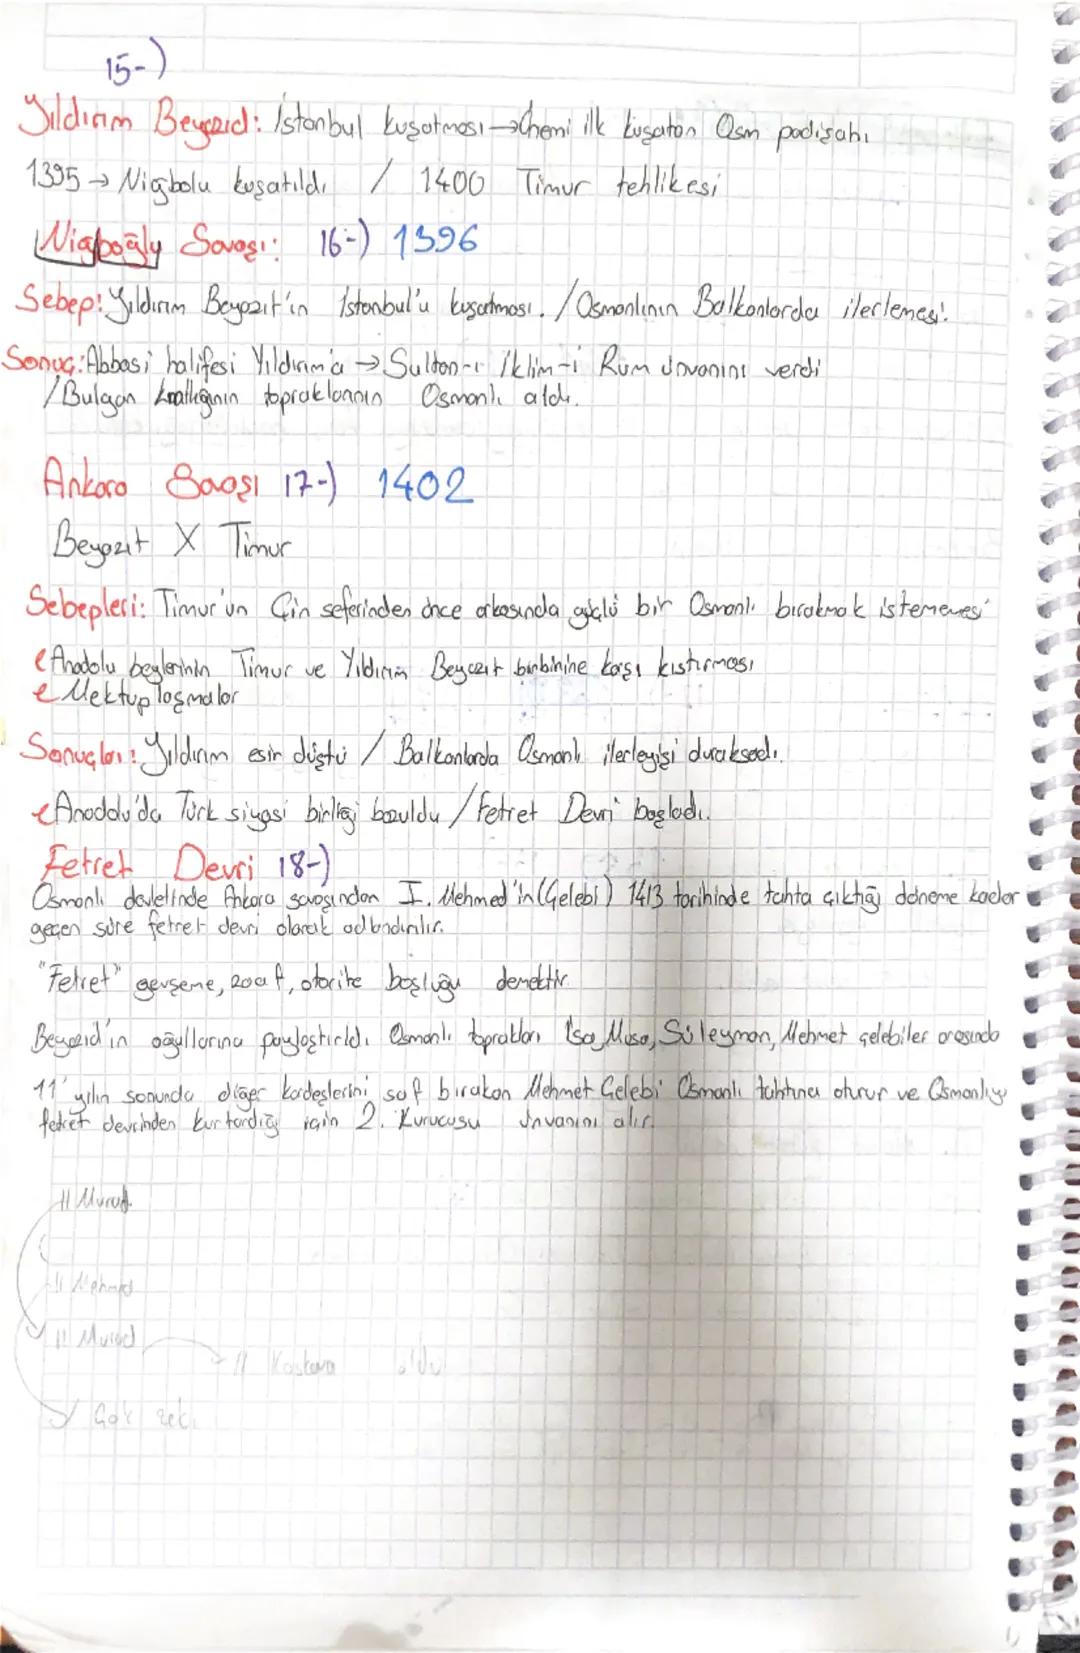 15-)
Yıldırım Beyazıd: İstanbul kuşatması → Önemi ilk kuşatan Osm padişahı
1395 → Niğbolu kuşatıldı / 1400 Timur tehlikesi
Savaşı: 16-) 1396
Sebep: Yıldırım Beyazıt'in İstanbul'u kuşatması. / Osmanlının Balkanlarda ilerlemesi.
Sonuç: Abbasi halifesi Yıldırım'a → Sultan-ı İklim-i Rum ünvanını verdi
/ Bulgan krallığının topraklarının Osmanlı aldı.
Ankara Savaşı 17-) 1402
Beyazıt X Timur
Sebepleri: Timur'un Çin seferinden önce arkasında güçlü bir Osmanlı bırakmak istememesi
Anadolu beylerinin Timur ve Yıldırım Beyazıt birbirine karşı kıştırması
Mektuplaşmalar
Sonuçları: Yıldırım esir düştü / Balkanlarda Osmanlı ilerleyişi duraksadı.
Anadolu'da Türk siyasi birliği bozuldu / Fetret Devri başladı.
Fetret Devri 18-)
Osmanlı devletinde Ankara savaşından I. Mehmed'in (Çelebi) 1413 tarihinde tahta çıktığı döneme kadar
geçen süre fetret devri olarak adlandırılır.
"Fetret" gevşeme, zaaf, otorite boşluğu demektir.
Beyazıd'ın oğullarına paylaştırıldı Osmanlı toprakları İsa, Musa, Süleyman, Mehmet çelebiler arasında
11 yılın sonunda diğer kardeşlerini saf bırakan Mehmet Çelebi Osmanlı tahtına oturur ve Osmanlıyı
fetret devrinden kurtardığı için 2. Kurucusu ünvanını alır.
II Murad
II Mehmed
II Murad
II Koskova oldu
Çok zeki